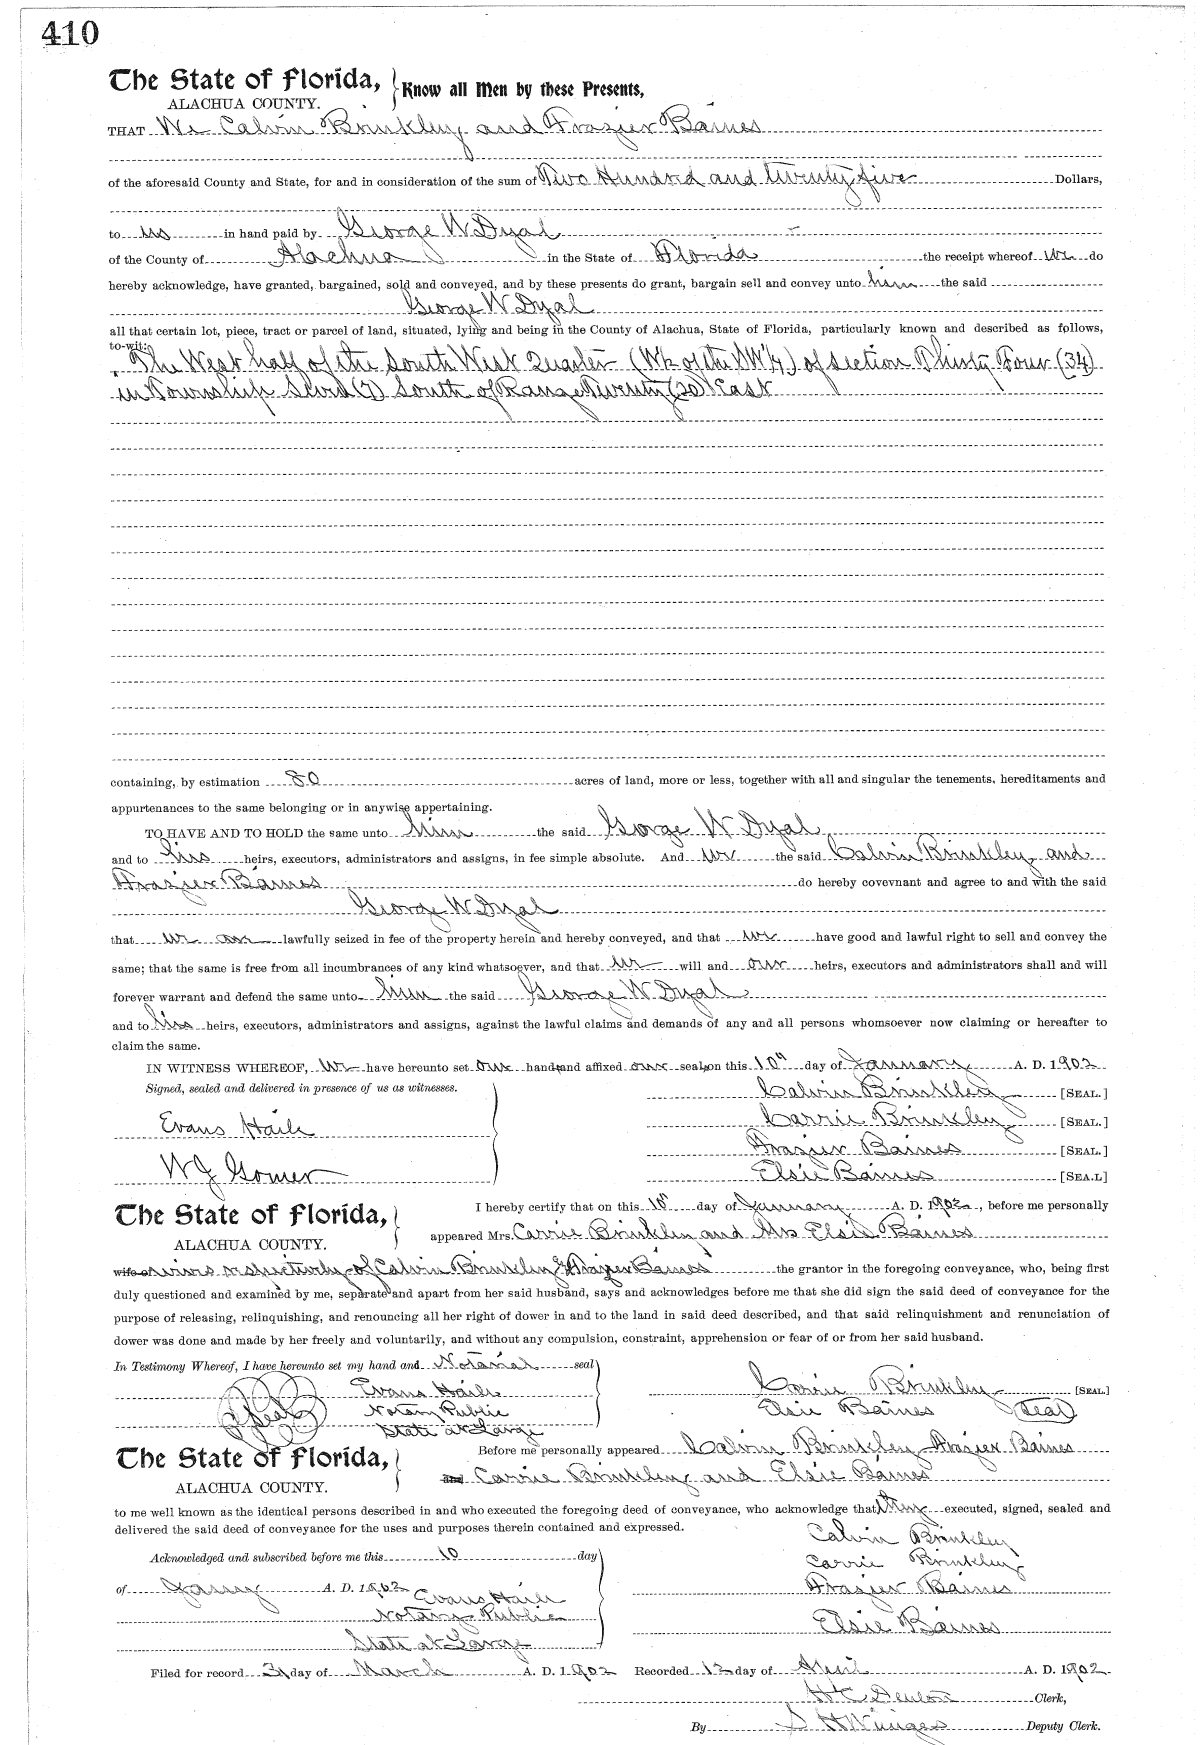 410
The State of Florida, Know all Men by these Presents,
ALACHUA COUNTY.
THAT We Calvin Brinkley and Frazier Baines
of the aforesaid County and State, for and in consideration of the sum of Two Hundred and twenty five Dollars,
to us in hand paid by George W Dyal
of the County of Alachua in the State of Florida the receipt whereof we do
hereby acknowledge, have granted, bargained, sold and conveyed, and by these presents do grant, bargain sell and convey unto him the said
George W Dyal
all that certain lot, piece, tract or parcel of land, situated, lying and being in the County of Alachua, State of Florida, particularly known and described as follows,
to-wit:
The West half of the South West Quarter (W½ of the SW¼) of section Thirty Four (34)
in Township Seven (7) South of Range Twenty (20) East
containing, by estimation 80 acres of land, more or less, together with all and singular the tenements, hereditaments and
appurtenances to the same belonging or in anywise appertaining.
TO HAVE AND TO HOLD the same unto him the said George W Dyal
and to his heirs, executors, administrators and assigns, in fee simple absolute. And we the said Calvin Brinkley and
Frazier Baines do hereby covevnant and agree to and with the said
George W Dyal
that we are lawfully seized in fee of the property herein and hereby conveyed, and that we have good and lawful right to sell and convey the
same; that the same is free from all incumbrances of any kind whatsoever, and that we will and our heirs, executors and administrators shall and will
forever warrant and defend the same unto him the said George W Dyal
and to his heirs, executors, administrators and assigns, against the lawful claims and demands of any and all persons whomsoever now claiming or hereafter to
claim the same.
IN WITNESS WHEREOF, we have hereunto set our hands and affixed our seals on this 10th day of January A. D. 1902
Signed, sealed and delivered in presence of us as witnesses.
Calvin Brinkley [SEAL.]
Evans Haile
Carrie Brinkley [SEAL.]
Frazier Baines [SEAL.]
W J Gomer
Elsie Baines [SEA.L]
The State of Florida,
ALACHUA COUNTY.
I hereby certify that on this 10" day of January A. D. 1902, before me personally
appeared Mrs. Carrie Brinkley and Mrs Elsie Baines
wife of wives respectively of Calvin Brinkley & Frazier Baines the grantor in the foregoing conveyance, who, being first
duly questioned and examined by me, separate and apart from her said husband, says and acknowledges before me that she did sign the said deed of conveyance for the
purpose of releasing, relinquishing, and renouncing all her right of dower in and to the land in said deed described, and that said relinquishment and renunciation of
dower was done and made by her freely and voluntarily, and without any compulsion, constraint, apprehension or fear of or from her said husband.
In Testimony Whereof, I have hereunto set my hand and Notarial seal
Seal
Evans Haile
Notary Public
State at Large
Carrie Brinkley [SEAL.]
Elsie Baines Seal
The State of Florida,
ALACHUA COUNTY.
Before me personally appeared Calvin Brinkley Frazier Baines
Carrie Brinkley and Elsie Baines
to me well known as the identical persons described in and who executed the foregoing deed of conveyance, who acknowledge that they executed, signed, sealed and
delivered the said deed of conveyance for the uses and purposes therein contained and expressed.
Acknowledged and subscribed before me this 10 day
of Jany A. D. 1902
Evans Haile
Notary Public
State at Large
Calvin Brinkley
Carrie Brinkley
Frazier Baines
Elsie Baines
Filed for record 31 day of March A. D. 1902 Recorded 12 day of April A. D. 1902
H C Denton Clerk,
By S H Wienges Deputy Clerk.